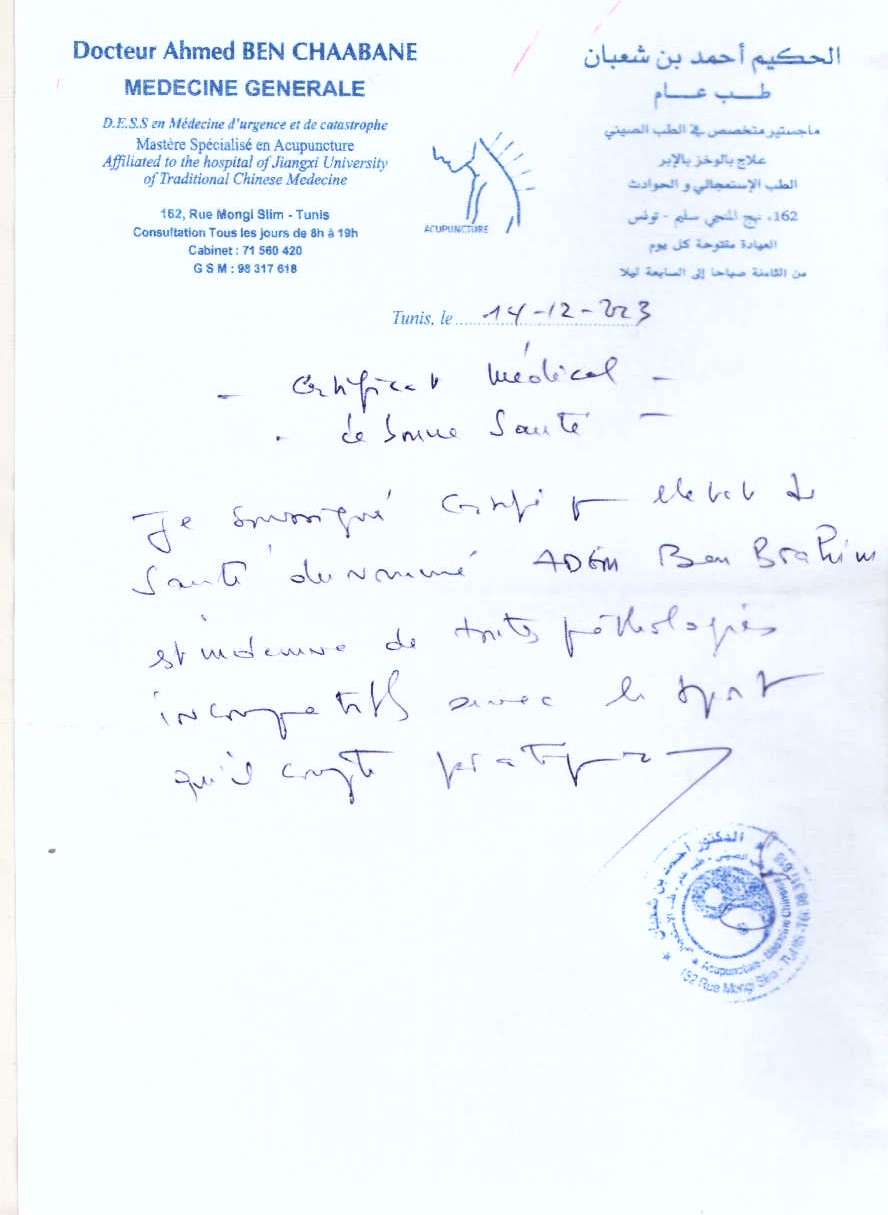 Docteur Ahmed BEN CHAABANE
MEDECINE GENERALE
D.E.S.S en Médecine d'urgence et de catastrophe
Mastère Spécialisé en Acupuncture
Affiliated to the hospital of Jiangxi University
of Traditional Chinese Medecine
162, Rue Mongi Slim - Tunis
Consultation Tous les jours de 8h à 19h
Cabinet : 71 560 420
G S M : 98 317 618
ACUPUNCTURE
الحكيم أحمد بن شعبان
طب عام
ماجستير متخصص في الطب الصيني
علاج بالوخز بالإبر
الطب الإستعجالي و الحوادث
162، نهج المنجي سليم - تونس
العيادة مفتوحة كل يوم
من الثامنة صباحا إلى السابعة ليلا
Tunis, le 14-12-2023
- Certificat Médical -
- de bonne Santé -
Je soussigné certifie que l'etat de
Santé du nommé ADEM Ben Brahim
est indemne de toutes pathologies
incompatibles avec le sport
qu'il compte pratiquer
الدكتور احمد بن شعبان
Acupuncture - Médecine Chinoise
162 Rue Mongi Slim - Tunis